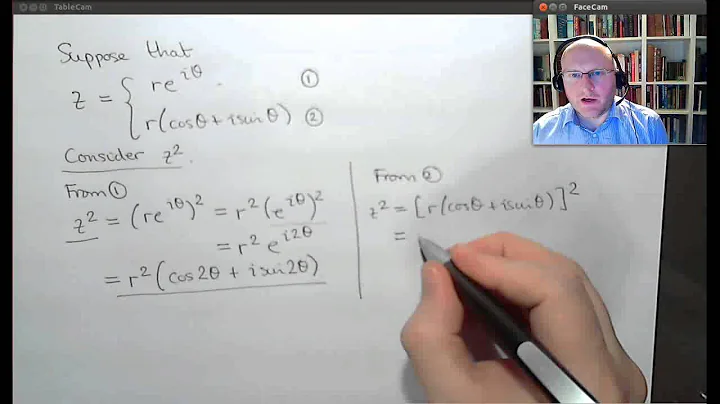 TableCam
FaceCam
Suppose that
z = { re^{iθ} . ①
r(cosθ + isinθ) ②
Consider z².
From ①
z² = (re^{iθ})² = r²(e^{iθ})²
= r² e^{i2θ}
= r²(cos2θ + isin2θ)
From ②
z² = [r(cosθ + isinθ)]²
=